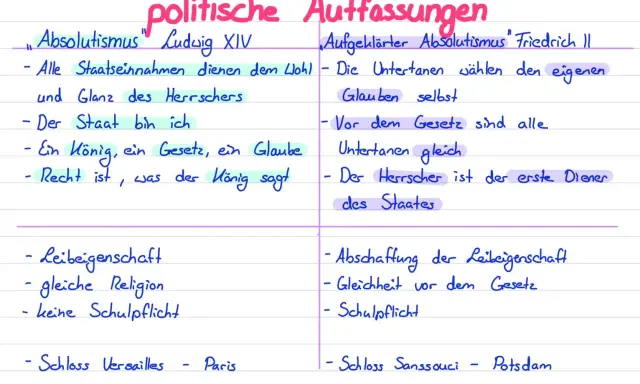 politische Auffassungen
"Absolutismus" Ludwig XIV
- Alle Staatseinnahmen dienen dem Wohl
und Glanz des Herrschers
- Der Staat bin ich
- Ein König, ein Gesetz, ein Glaube
- Recht ist, was der König sagt
"Aufgeklärter Absolutismus" Friedrich II
- Die Untertanen wählen den eigenen
Glauben selbst
- Vor dem Gesetz sind alle
Untertanen gleich
- Der Herrscher ist der erste Diener
des Staates
- Leibeigenschaft
- gleiche Religion
- keine Schulpflicht
- Schloss Versailles - Paris
- Abschaffung der Leibeigenschaft
- Gleichheit vor dem Gesetz
- Schulpflicht
- Schloss Sanssouci - Potsdam